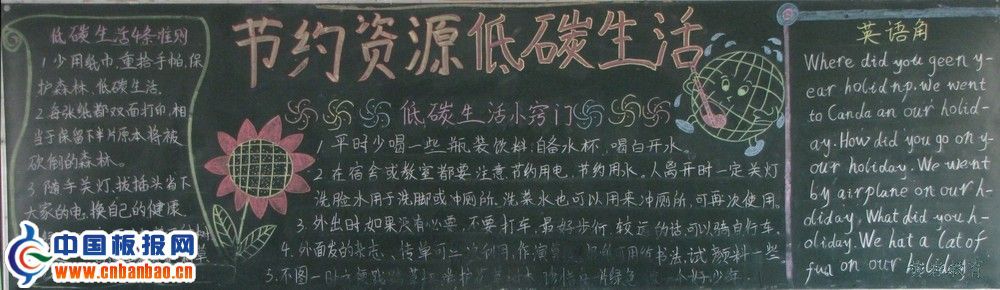 节约资源低碳生活
低碳生活4条准则
1少用纸巾,重拾手帕,保
护森林,低碳生活。
2每张纸都双面打印,相
当于保留下半片原本将被
砍倒的森林。
3随手关灯,拔插头省下
大家的电,换自己的健康
低碳生活小窍门
1平时少喝一些瓶装饮料,自备水杯,喝白开水。
2.在宿舍或教室都要注意节约用电,节约用水。人离开时一定关灯
洗脸水用于洗脚或冲厕所,洗菜水也可以用来冲厕所,可再次使用。
3.外出时如果没有必要,不要打车,最好步行,较远的话可以骑自行车。
4.外面发的杂志、传单可二次利用,作演
用作书法,试颜料一些。
5.不图一时
英语角
Where did you geen y-
ear holidnp. We went
to Canda an our holid-
ay. How did you go on y-
our holiday. We went
by airplane on our h-
oliday. What did you h-
oliday. We hat a lat of
fud on our holiday
中国板报网
www.cnbanbao.cn